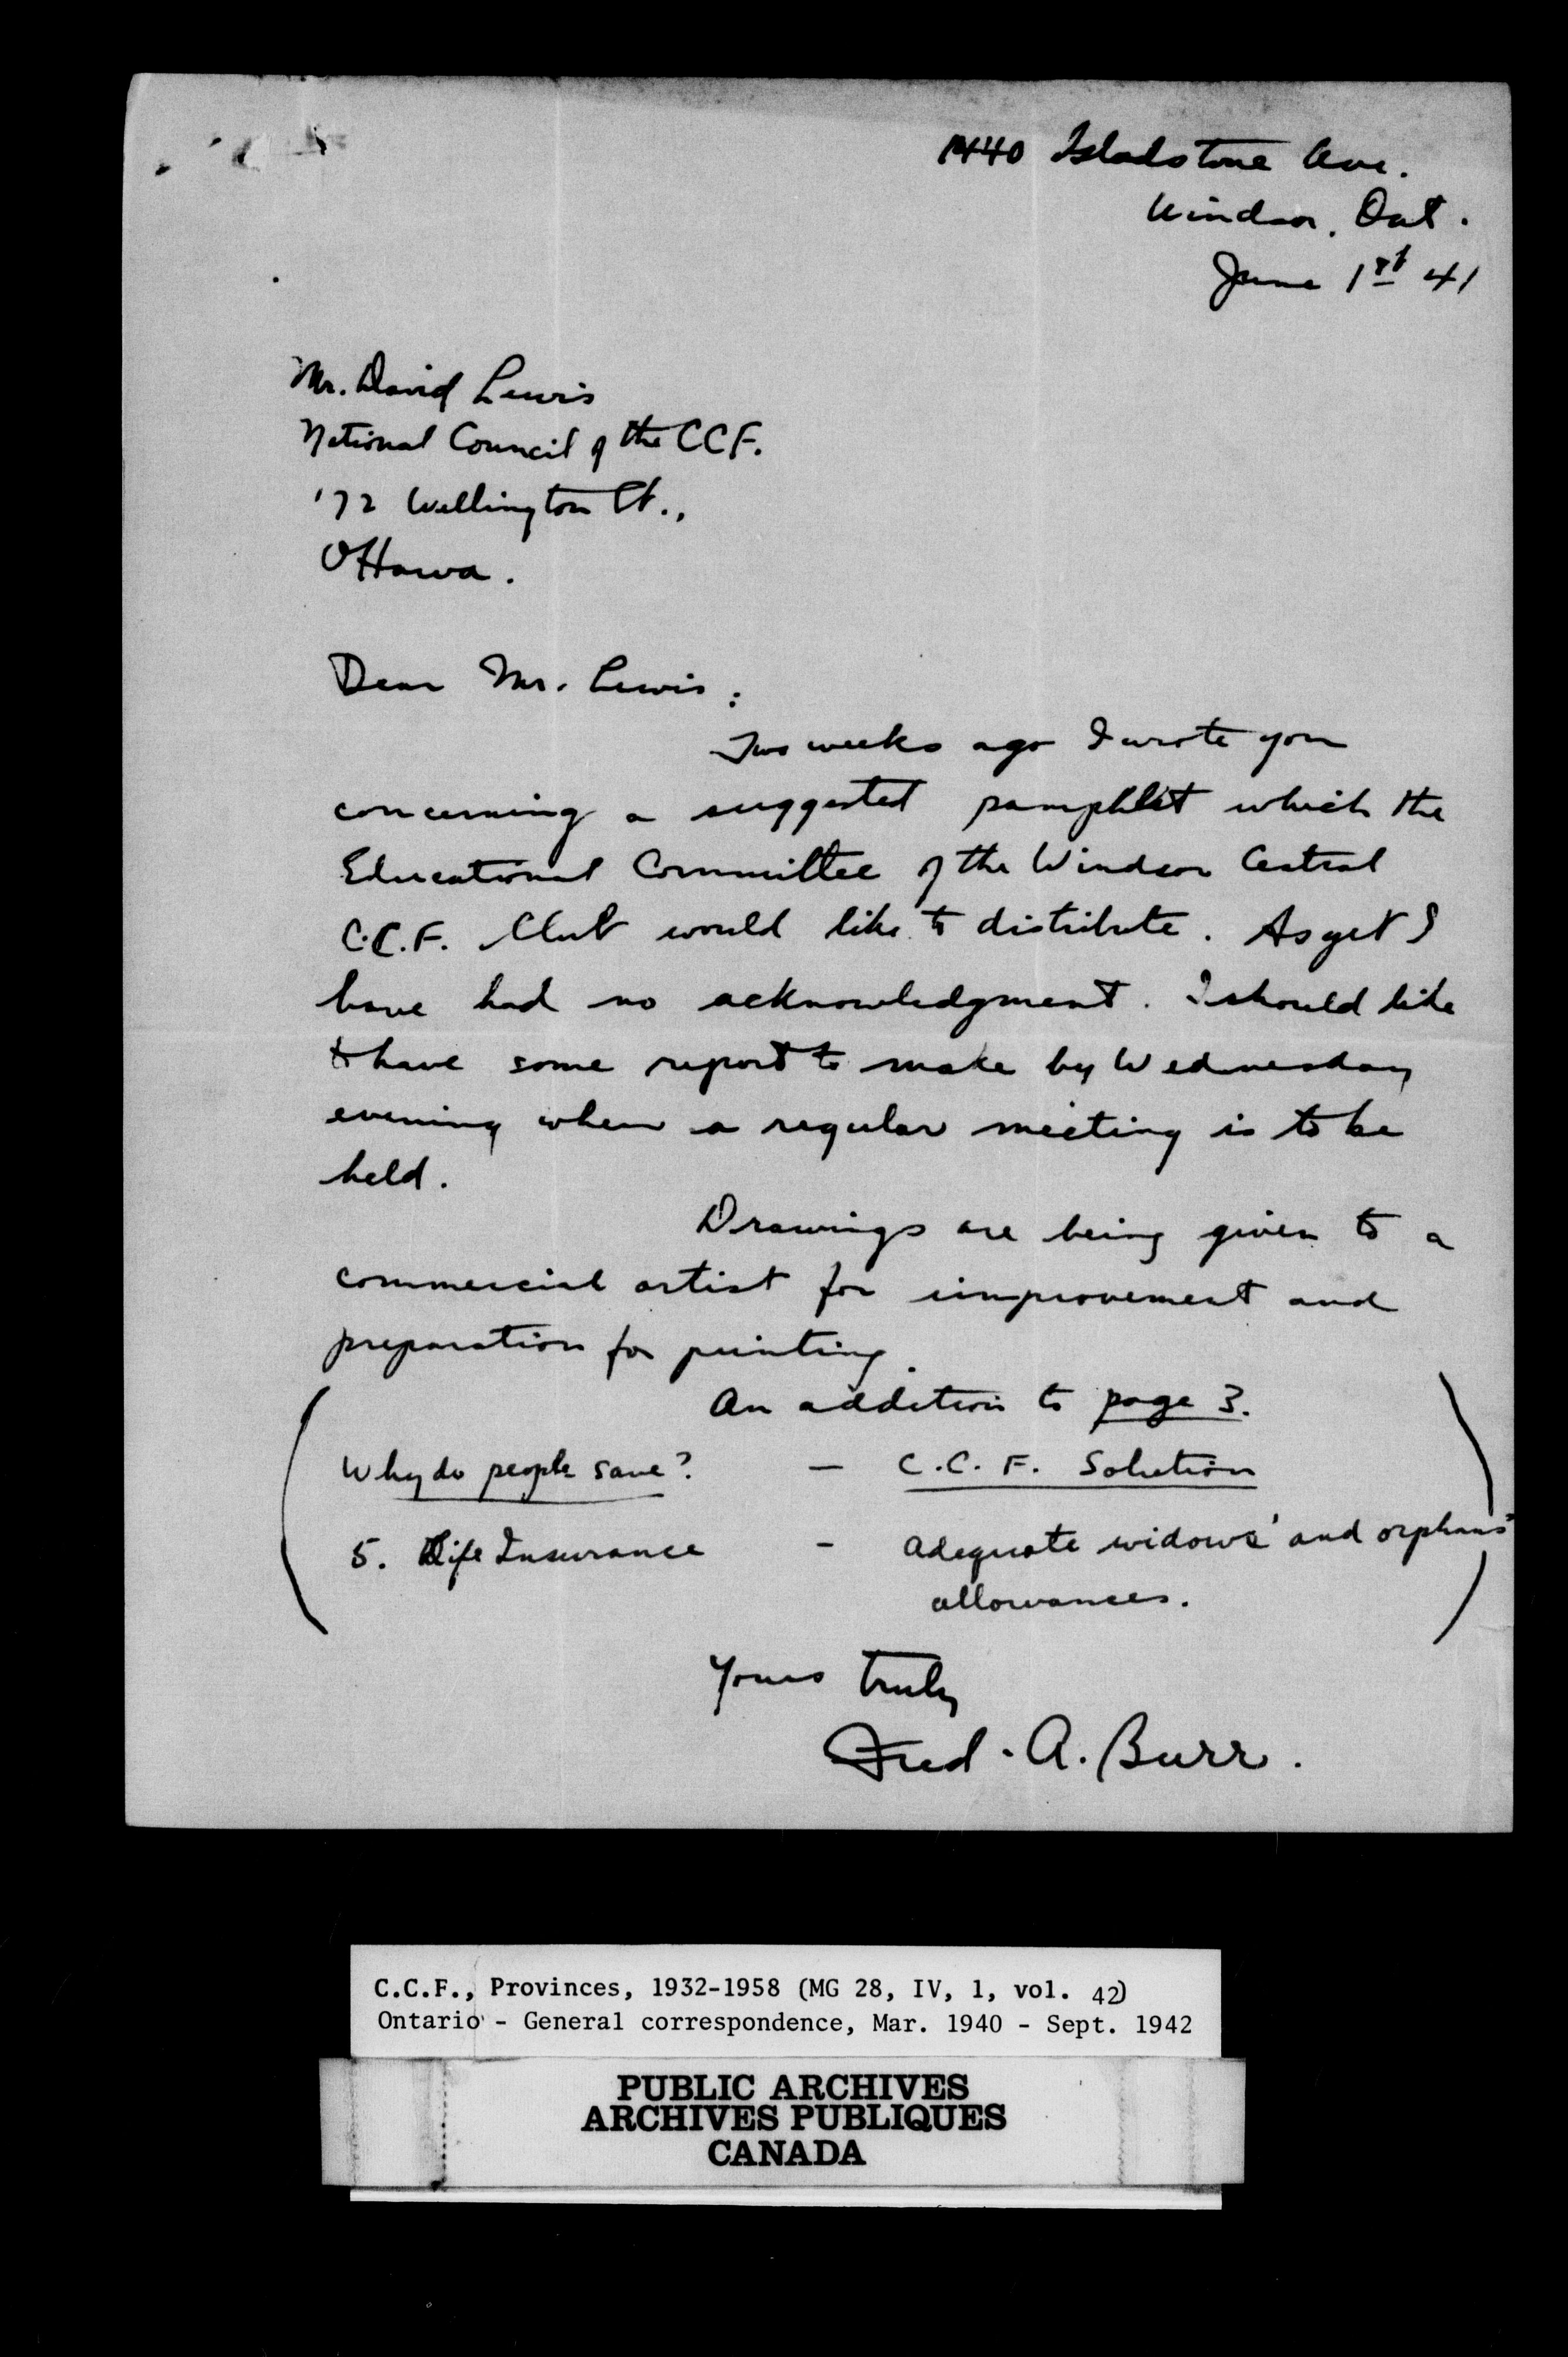 1440 Gladstone Ave.
Windsor, Ont.
June 1st 41
Mr. David Lewis
National Council of the CCF.
172 Wellington St.,
Ottawa.
Dear Mr. Lewis:
Two weeks ago I wrote you
concerning a suggested pamphlet which the
Educational Committee of the Windsor Central
C.C.F. Club would like to distribute. As yet I
have had no acknowledgment. I should like
to have some report to make by Wednesday
evening when a regular meeting is to be
held.
Drawings are being given to a
commercial artist for improvement and
preparation for printing.
An addition to page 3.
Why do people save? — C.C.F. Solution
5. Life Insurance - Adequate widows' and orphans'
allowances.
Yours truly
Fred. A. Burr.
C.C.F., Provinces, 1932-1958 (MG 28, IV, 1, vol. 42)
Ontario - General correspondence, Mar. 1940 - Sept. 1942
PUBLIC ARCHIVES
ARCHIVES PUBLIQUES
CANADA